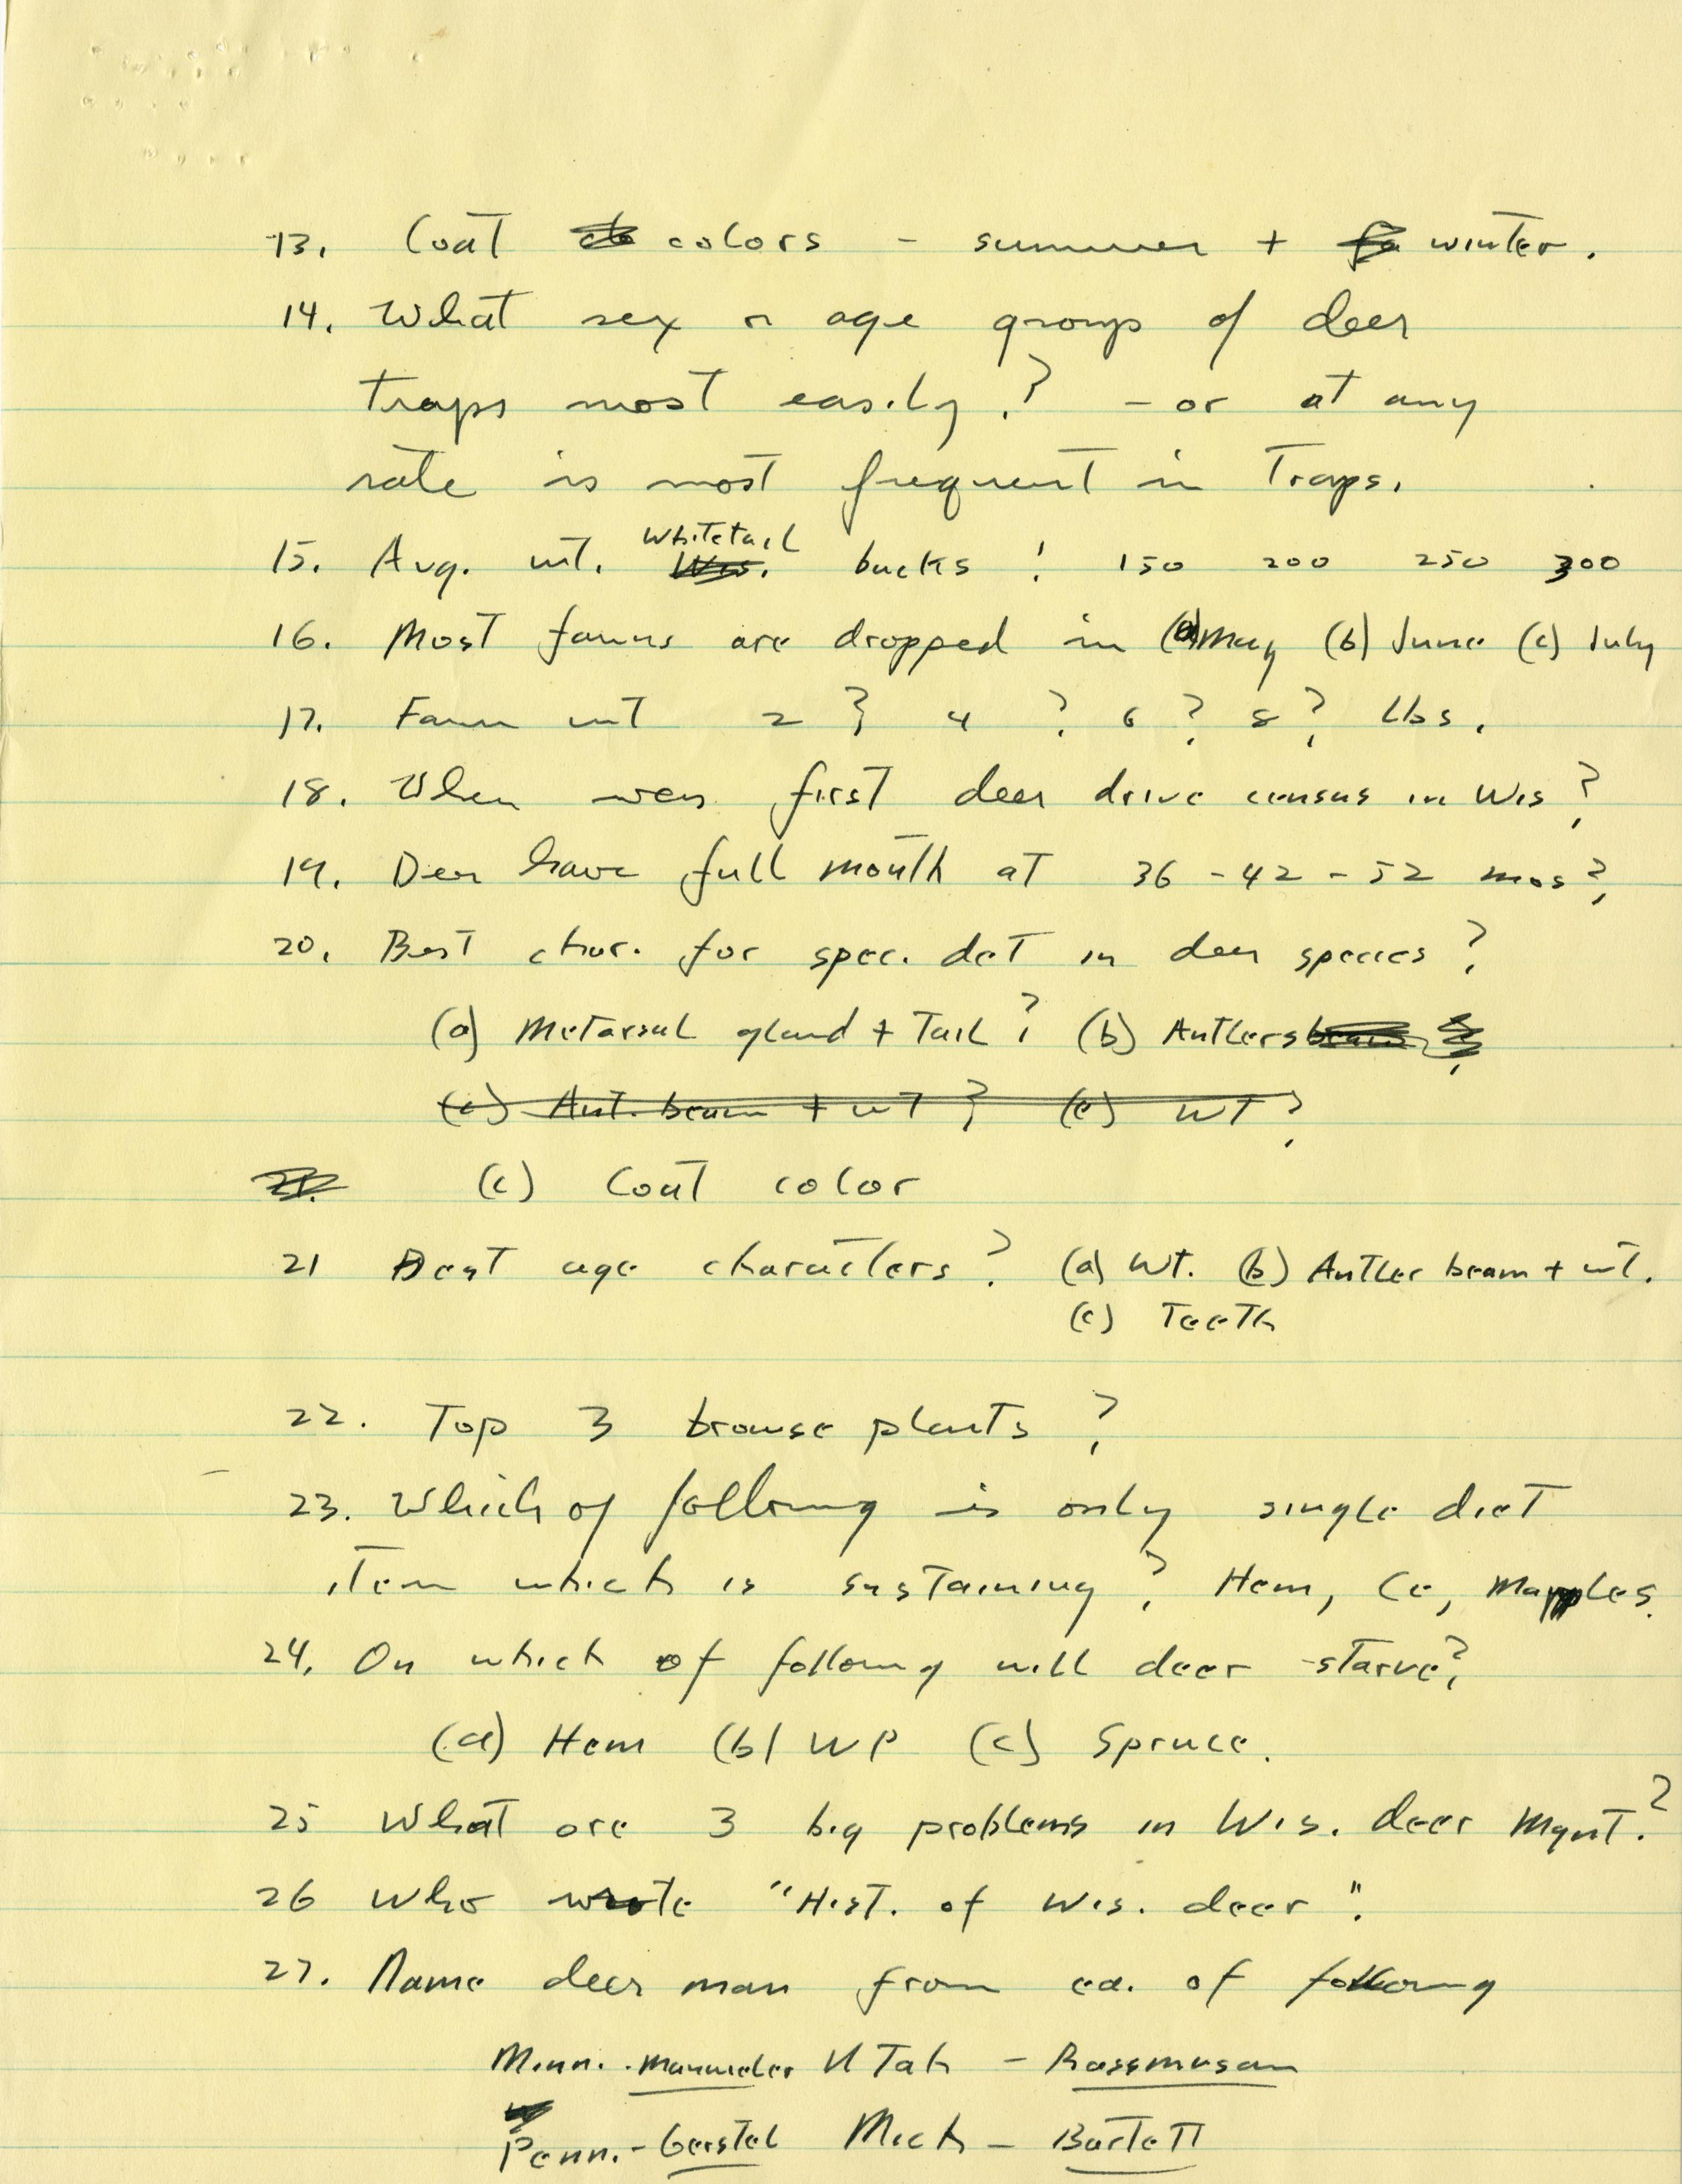 13. Coat colors - summer + winter.
14. What sex or age group of deer
traps most easily? - or at any
rate is most frequent in Traps.
15. Avg. wt. Whitetail bucks! 150 200 250 300
16. Most fawns are dropped in (a) May (b) June (c) July
17. Fawn wt 2? 4? 6? 8? Lbs.
18. When was first deer drive census in Wis?
19. Deer have full mouth at 36 - 42 - 52 mos?
20. Best char. for spec. det in deer species?
(a) Metarsal gland + Tail? (b) Antlers
(c) Ant. beam + wT? (c) WT?
(c) Coat color
21 Best age characters? (a) Wt. (b) Antler beam + wt.
(c) Teeth
22. Top 3 browse plants?
23. Which of following is only single diet
item which is sustaining? Hem, Ce, Maples.
24. On which of following will deer starve?
(a) Hem (b) WP (c) Spruce.
25 What are 3 big problems in Wis. deer Mgnt.?
26 Who wrote "Hist. of Wis. deer".
27. Name deer man from ea. of following
Minn. - Manweiler UTah - Rassmusan
Penn. - Gerstel Mich - Bartett